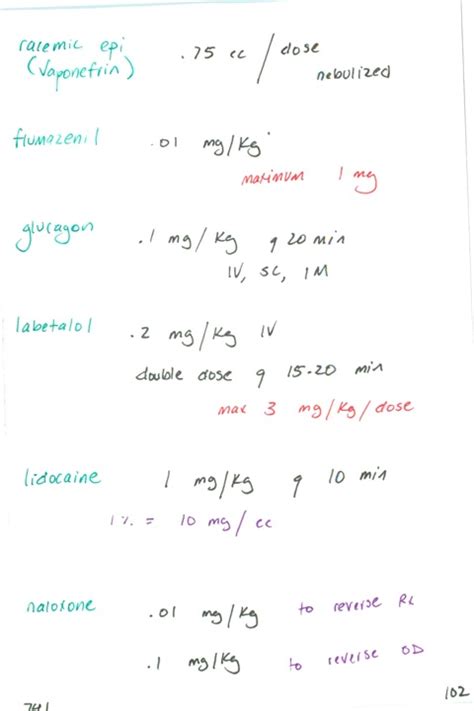 racemic epi .75 cc / dose
(Vaponefrin) nebulized
flumazenil .01 mg/kg
maximum 1 mg
glucagon .1 mg/kg q 20 min
IV, SC, IM
labetalol .2 mg/kg IV
double dose q 15-20 min
max 3 mg/kg/dose
lidocaine 1 mg/kg q 10 min
1% = 10 mg/cc
naloxone .01 mg/kg to reverse Rx
.1 mg/kg to reverse OD
102